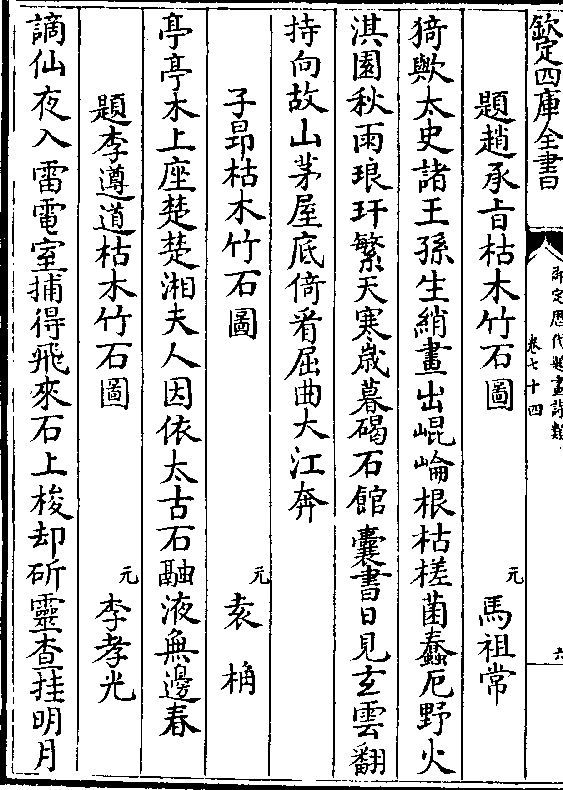 欽定四庫全書
御定歷代題畫詩類
卷七十四
六
題趙承㫖枯木竹石圖　元　馬祖常
猗歟太史諸王孫生綃畫出崐崘根枯槎菌蠢厄野火
淇園秋雨琅玕繁天寒嵗暮碣石館囊書日見玄雲翻
持向故山茅屋底倚看屈曲大江奔
子昻枯木竹石圖　元　袁桷
亭亭木上座楚楚湘夫人因依太古石融液無邊春
題李遵道枯木竹石圖　元　李孝光
謫仙夜入雷電室捕得飛來石上梭却斫靈查挂明月